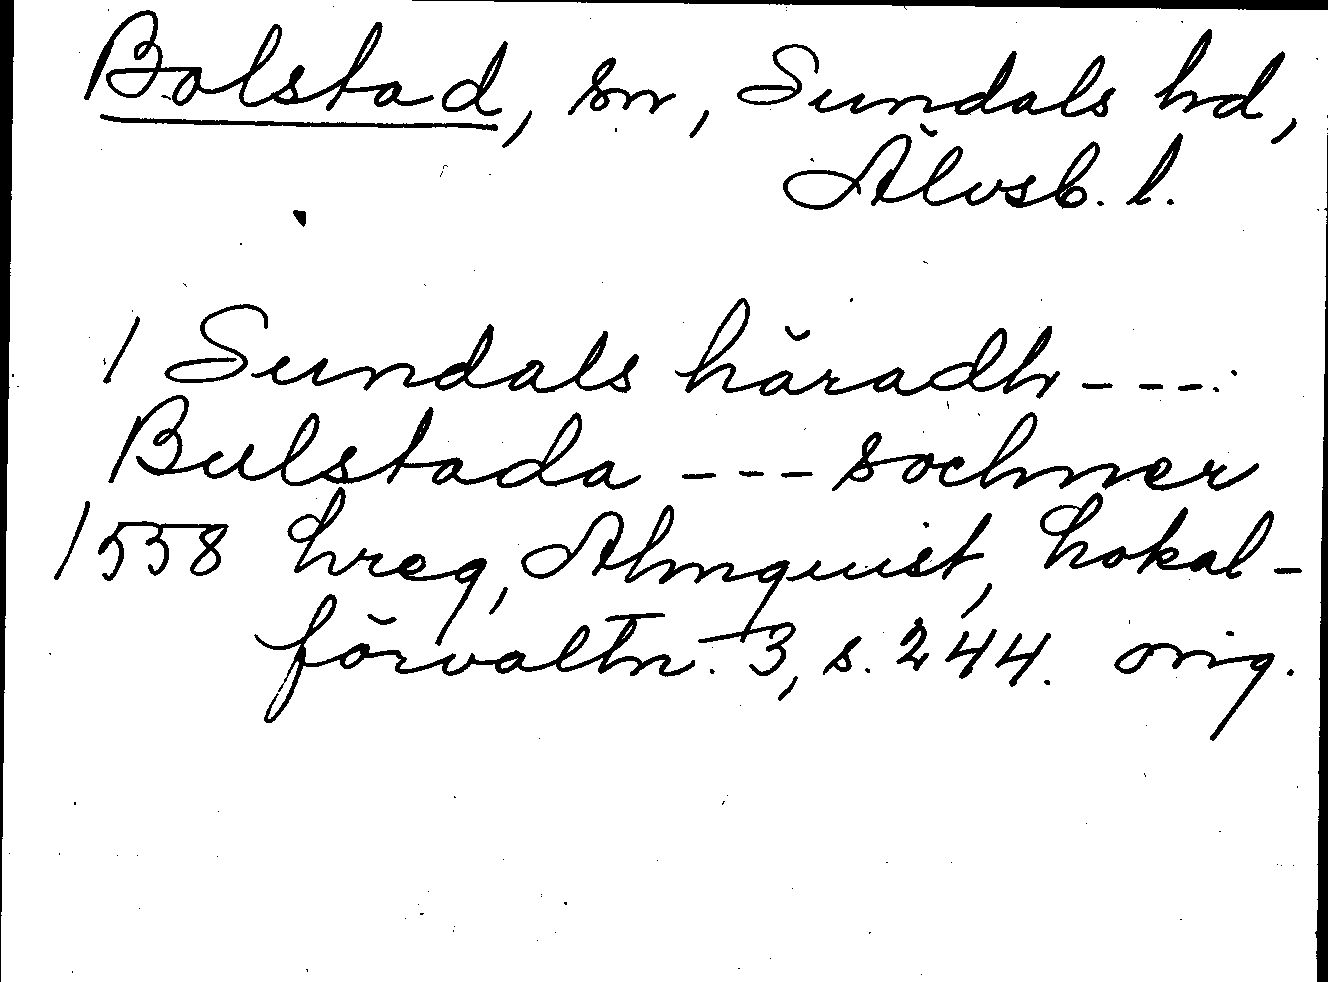 Bolstad, sn, Sundals hd,
Älvsb. l.
I Sundals häradh ---
Bulstada --- sochner
1558 hreg, Almquist, Lokal-
förvaltn. 3, s. 244. orig.